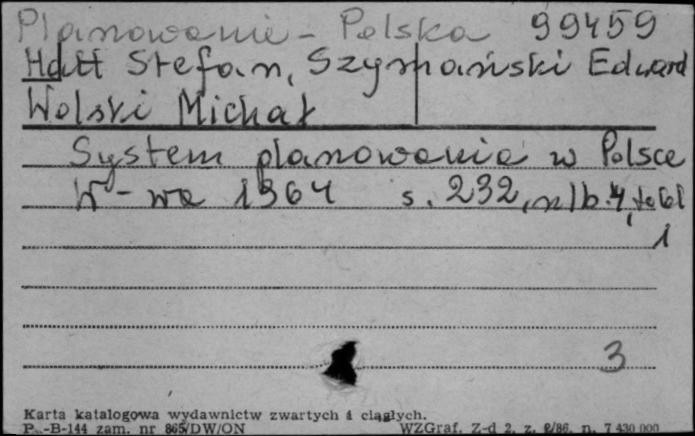 Planowanie - Polska 99459
Hatt Stefan, Szymański Edward
Wolski Michał
System planowania w Polsce
W-wa 1964 s. 232, nlb. 4, tabl
1
3
Karta katalogowa wydawnictw zwartych i ciągłych.
-B-144 zam. nr 865/DW/ON WZGraf. Z-d 2, z. /86. n. 7 430 000